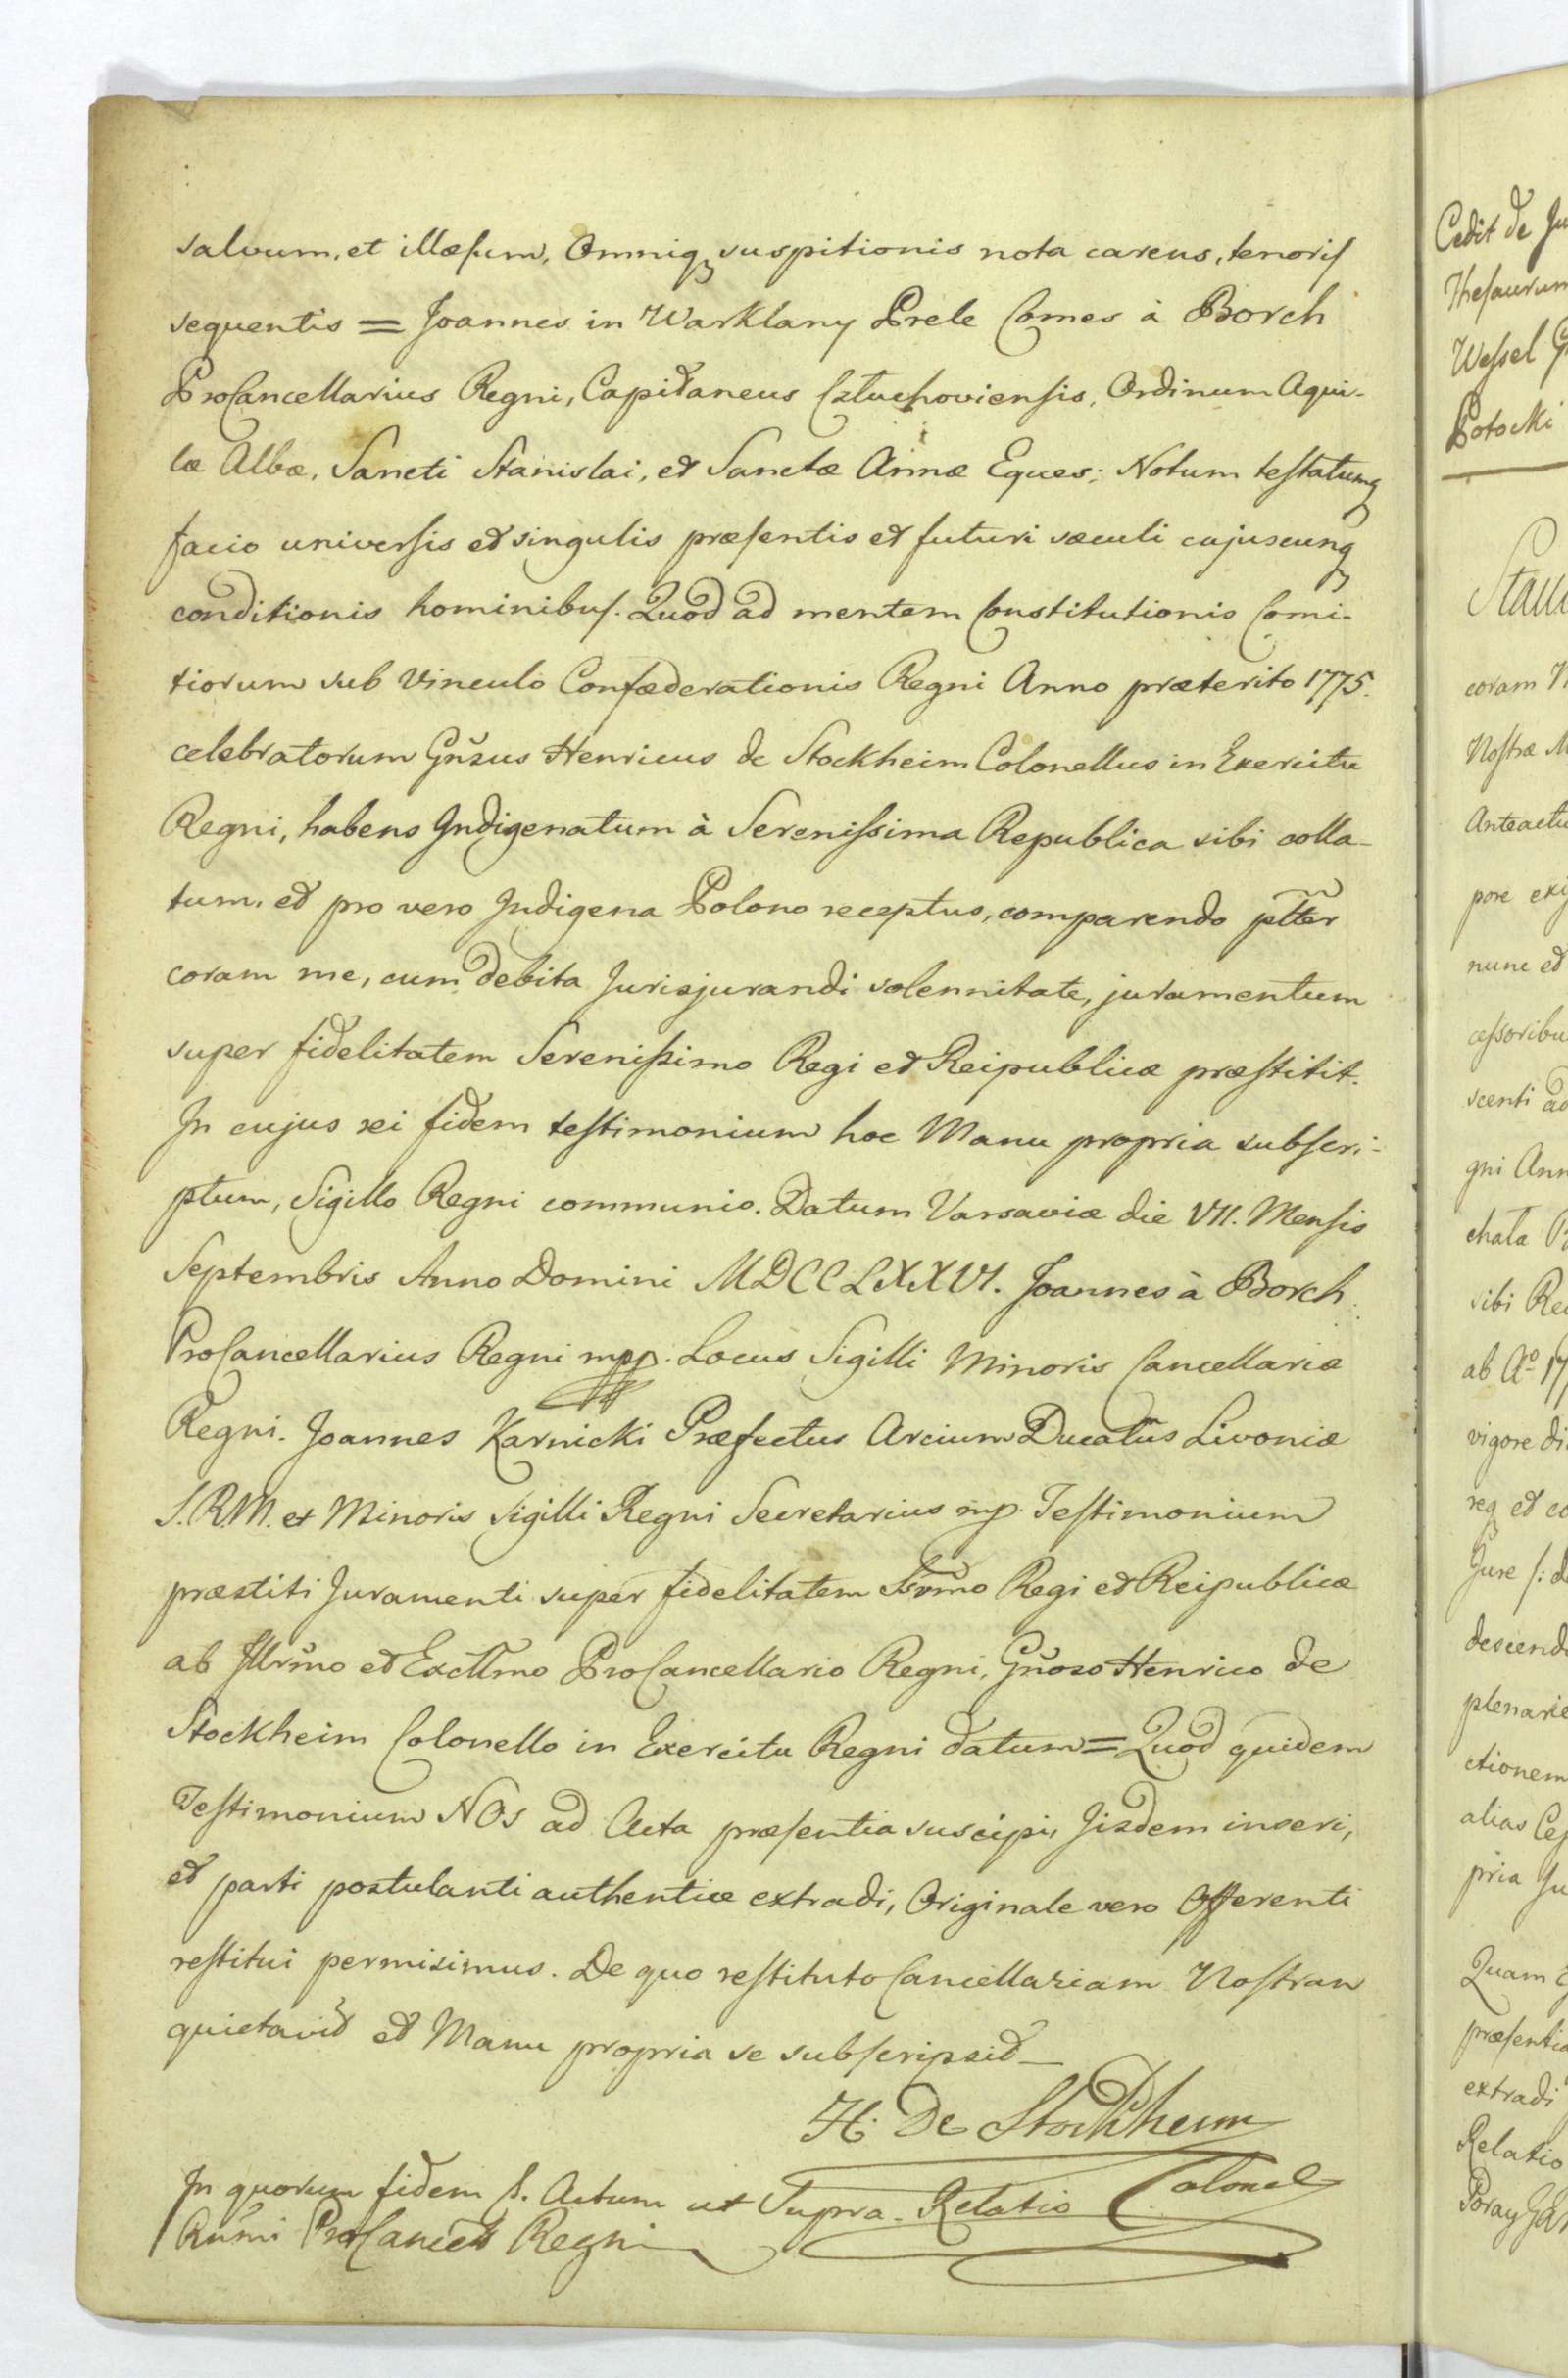 salvum, et illæsum, Omniq₃ suspitionis nota carens, tenoris
sequentis = Joannes in Warklany Prele Comes à Borch
ProCancellarius Regni, Capitaneus Człuchoviensis, Ordinum Aqui-
læ Albæ, Sancti Stanislai, et Sanctæ Annæ Eques; Notum testatumq₃
facio universis et singulis præsentis et futuri sæculi cujuscunq₃
conditionis hominibus. Quod ad mentem Constitutionis Comi-
tiorum sub Vinculo Confæderationis Regni Anno præterito 1775.
celebratorum Gñsus Henricus de Stockheim Colonellus in Exercitu
Regni, habens Indigenatum à Serenissima Republica sibi colla-
tum, et pro vero Indigena Polono receptus, comparendo pltter
coram me, cum debita Jurisjurandi solennitate, juramentum
super fidelitatem Serenissimo Regi et Reipublicæ præstitit.
In cujus rei fidem testimonium hoc Manu propria subscri-
ptum, Sigillo Regni communio. Datum Varsaviæ die VII. Mensis
Septembris Anno Domini MDCCLXXVI. Joannes à Borch
ProCancellarius Regni mpp. Locus Sigilli Minoris Cancellariæ
Regni. Joannes Karnicki Præfectus Arcium Ducatûs Livoniæ
S.R.M. et Minoris Sigilli Regni Secretarius mp. Testimonium
præstiti Juramenti super fidelitatem Ssrmo Regi et Reipublicæ
ab Illrmo et Exclmo ProCancellario Regni, Gñoso Henrico de
Stockheim Colonello in Exercitu Regni datum = Quod quidem
Testimonium NOS ad Acta præsentia suscipi, Iisdem inseri,
et parti postulanti authentice extradi, Originale vero Offerenti
restitui permisimus. De quo restituto Cancellariam Nostram
quietavit et Manu propria se subscripsit _
H. De Stockheim
Colonel
In quorum fidem S. Actum ut Supra. Relatio
ProCancell Regni
Cedit de
Thesaurum
Wessel
Potocki
coram
Nostræ
pore
nunc et
scenti ad
gni
sibi
ab Aº 17
vigore
req₃ et
Jure
plenarie
ctionem
alias
pria
Quam
extradi
Relatio